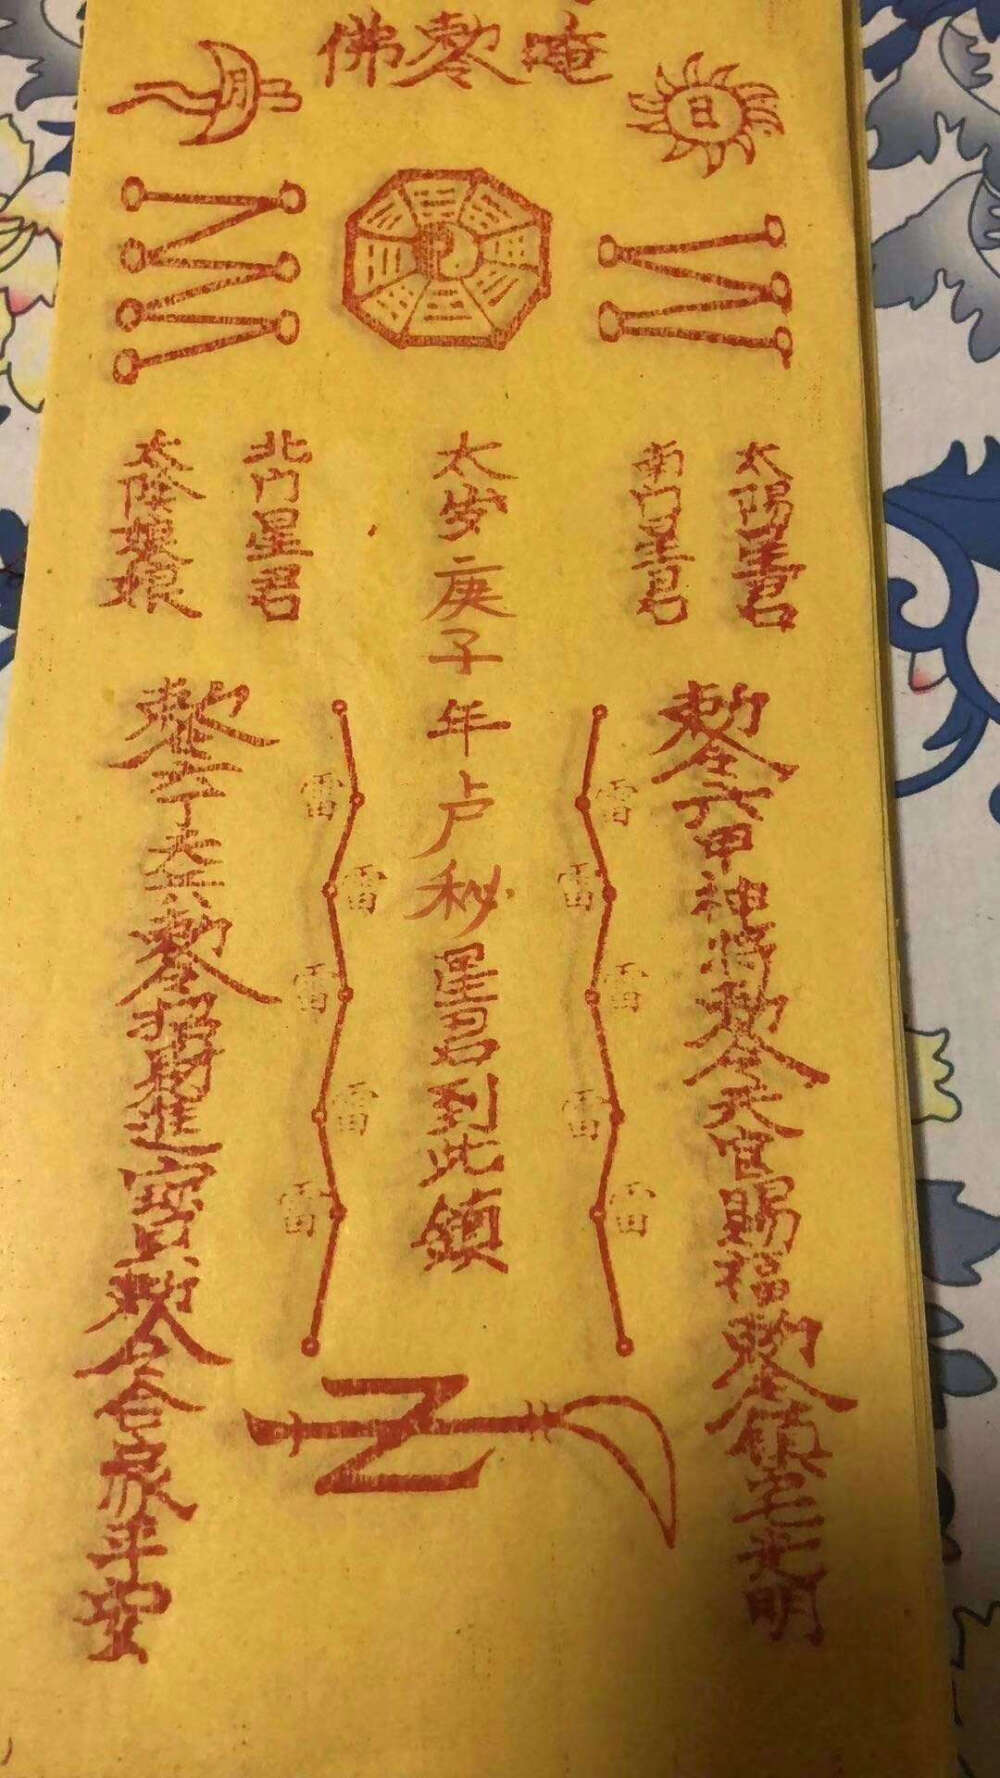 唵敕佛
日
月
太陽星君
南斗星君
太岁庚子年卢秘星君到此鎮
北斗星君
太陰娘娘
敕令六甲神将敕令天官賜福敕令鎮宅光明
雷
雷
雷
雷
雷
雷
雷
雷
雷
雷
敕令六丁天兵敕令招财進寶敕令合家平安